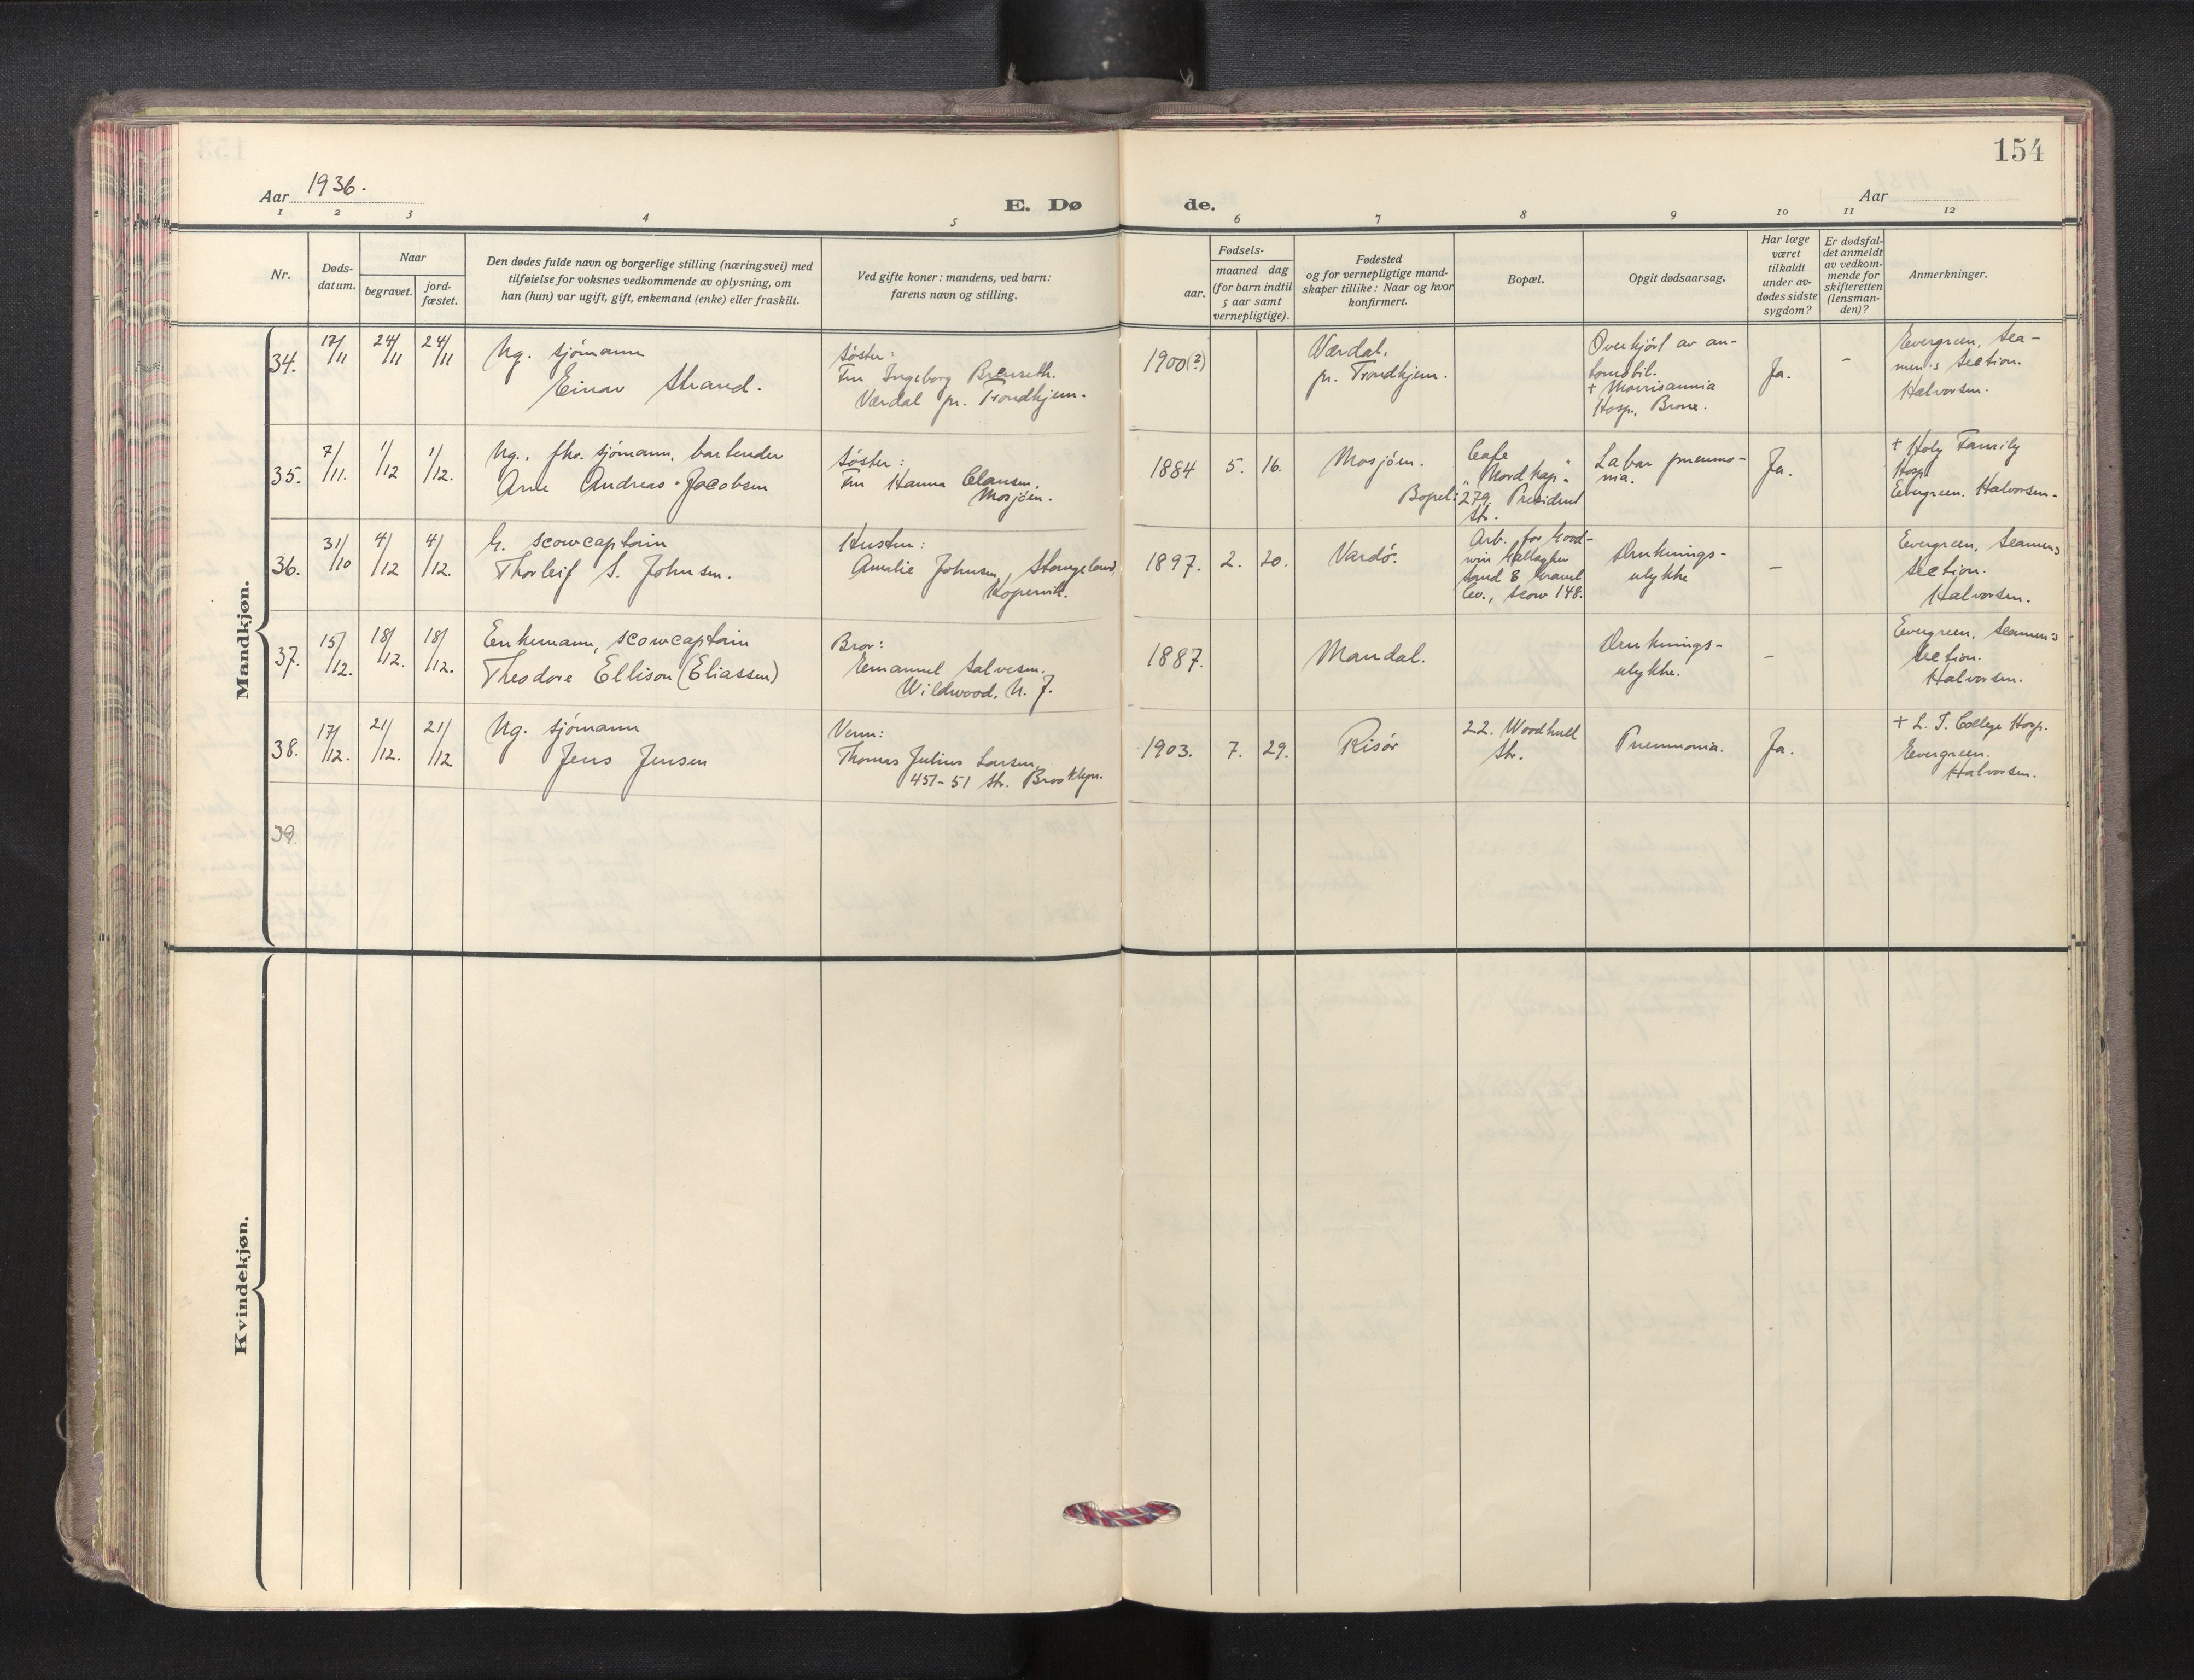 154
Aar 1936.
E. Dø
de.
Aar
1 2 3 4 5 6 7 8 9 10 11 12
Nr.
Døds-
datum.
Naar
begravet.
jord-
fæstet.
Den dødes fulde navn og borgerlige stilling (næringsvei) med
tilføielse for voksnes vedkommende av oplysning, om
han (hun) var ugift, gift, enkemand (enke) eller fraskilt.
Ved gifte koner: mandens, ved barn:
farens navn og stilling.
Fødsels-
aar.
maaned dag
(for barn indtil
5 aar samt
vernepligtige).
Fødested
og for vernepligtige mand-
skaper tillike: Naar og hvor
konfirmert.
Bopæl.
Opgit dødsaarsag.
Har læge
været
tilkaldt
under av-
dødes sidste
sygdom?
Er dødsfal-
det anmeldt
av vedkom-
mende for
skifteretten
(lensman-
den)?
Anmerkninger.
Mandkjøn.
34.
17/11
24/11
24/11
Ug. sjømann
Einar Strand.
Søster:
Fru Ingeborg Brenseth.
Værdal pr. Trondhjem.
1900(?)
Værdal.
pr. Trondhjem.
Overkjørt av au-
tomobil.
+ Morrisannia
Hosp., Bronx.
Ja.
-
Evergreen, Sea-
men's Section.
Halvorsen.
35.
7/11.
1/12
1/12.
Ug., fhv. sjømann, bartender
Arne Andreas Jacobsen
Søster:
Fru Hanna Clausen.
Mosjøen.
1884
5.
16.
Mosjøen.
Bopel:
Cafe
"Nordkap".
279 President
Str.
Lobar pneumo-
nia.
Ja.
+ Holy Family
Hosp.
Evergreen. Halvorsen.
36.
31/10
4/12
4/12.
G. scowcaptain
Thorleif S. Johnsen.
Hustru:
Amalie Johnsen, Stangeland,
Kopervik.
1897.
2.
20.
Vardø.
Arb. for Good-
win Gallagher
Sand & Gravel
Co., scow 148.
Druknings-
ulykke
-
Evergreen, Seamen's
Section.
Halvorsen.
37.
15/12.
18/12.
18/12.
Enkemann, scowcaptain
Theodore Ellison (Eliassen)
Bror:
Emanuel Salvesen.
Wildwood, N. J.
1887.
Mandal.
Druknings-
ulykke.
-
Evergreen, Seamen's
Section.
Halvorsen.
38.
17/12.
21/12.
21/12
Ug. sjømann
Jens Jensen
Venn:
Thomas Julius Larsen,
451-51 Str. Brooklyn.
1903.
7.
29.
Risør
22. Woodhull
Str.
Pneumonia.
Ja.
+ L. I. College Hosp.
Evergreen.
Halvorsen.
39.
Kvindekjøn.